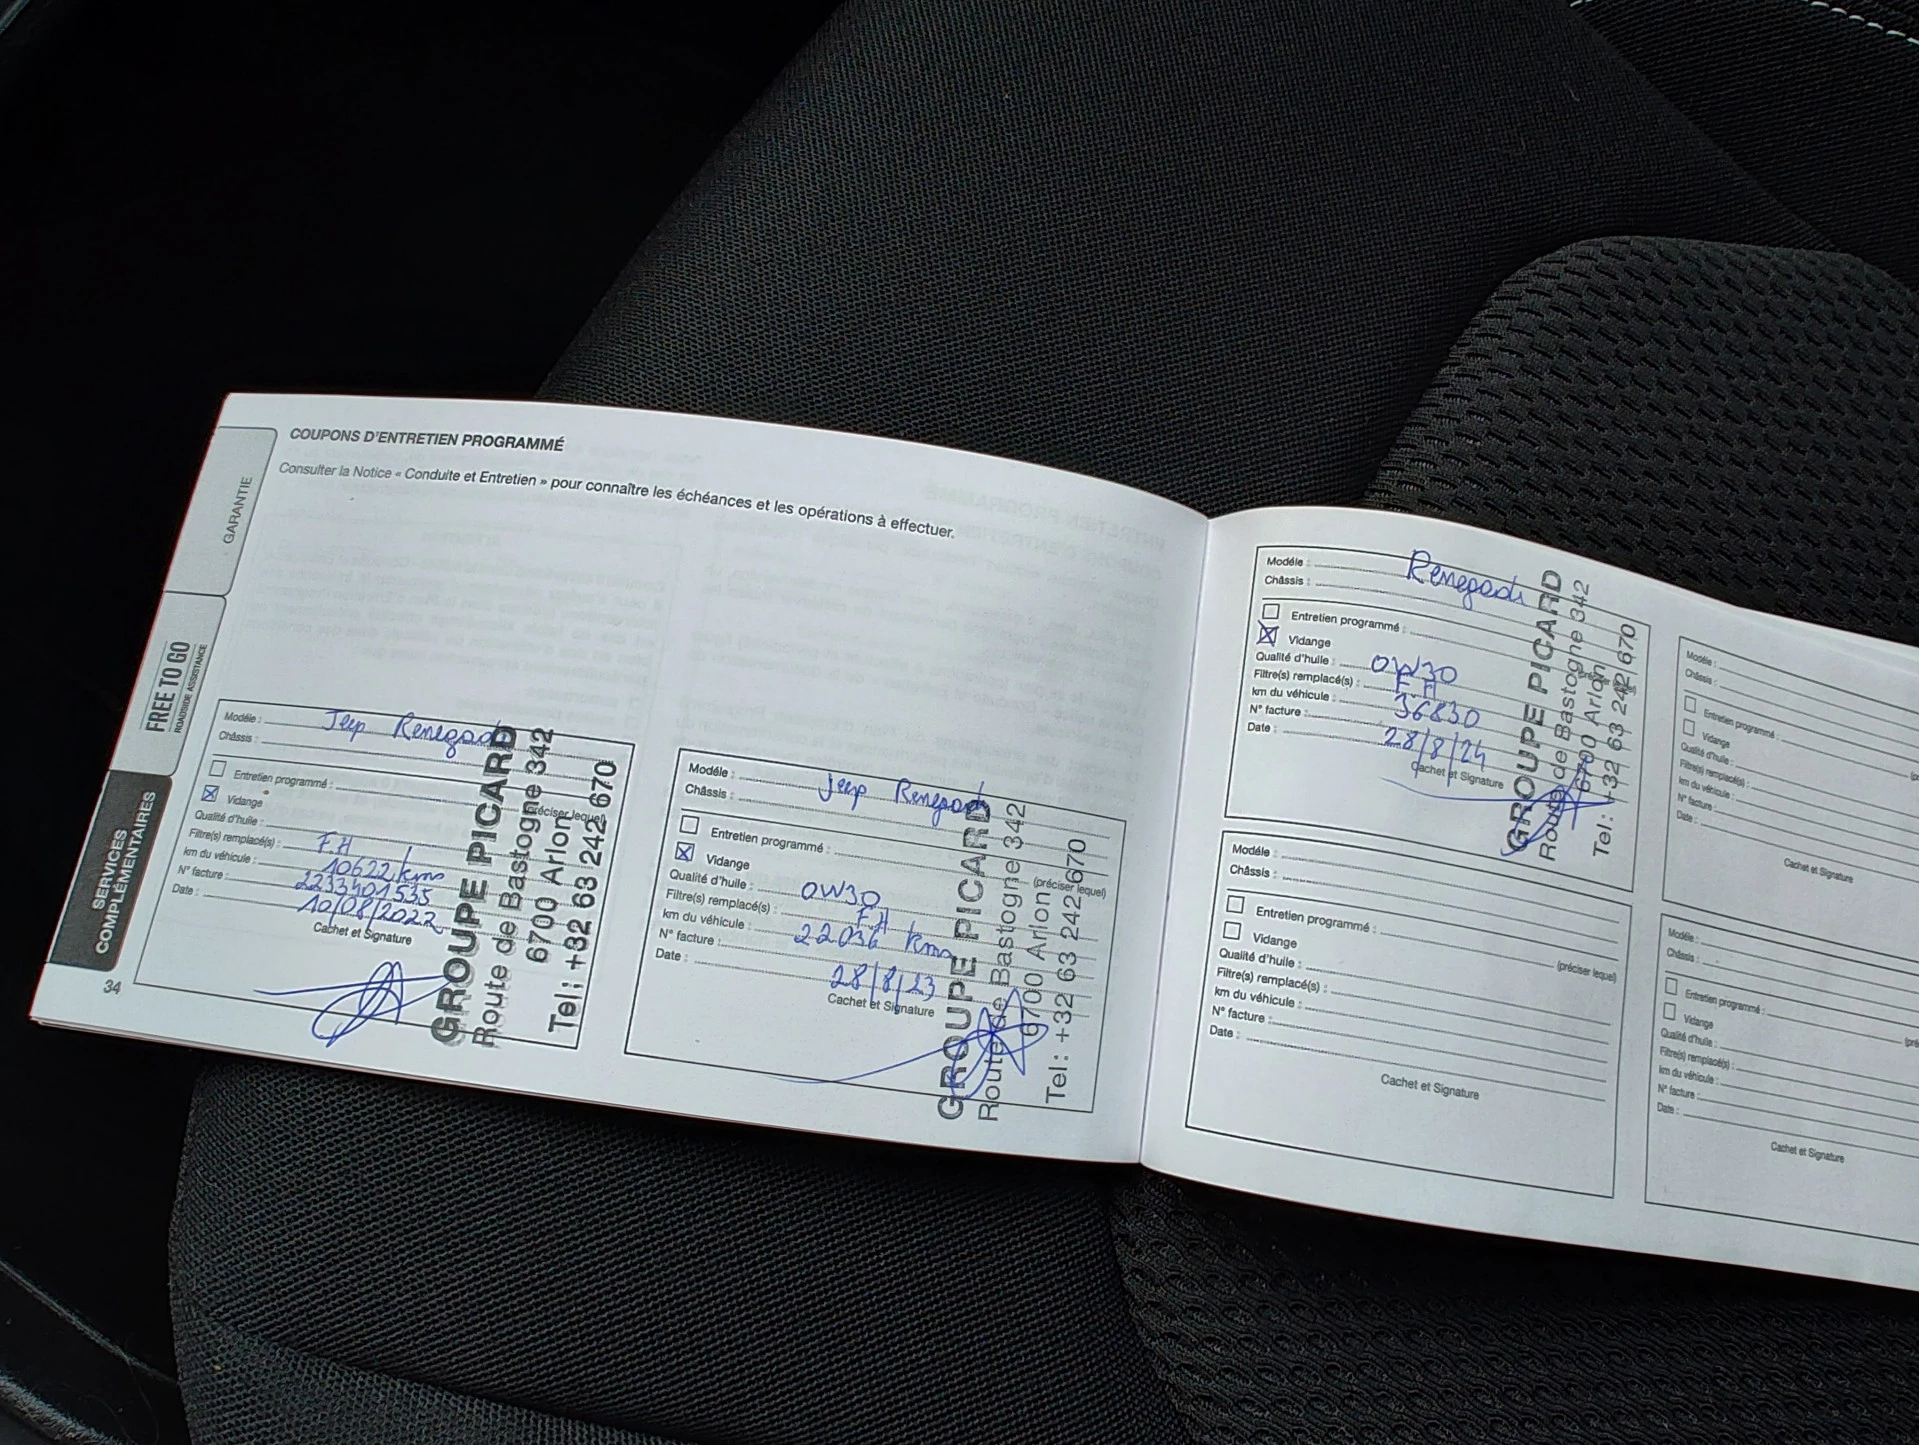 COUPONS D'ENTRETIEN PROGRAMMÉ
Consulter la Notice « Conduite et Entretien » pour connaître les échéances et les opérations à effectuer.
GARANTIE
FREE TO GO
ROADSIDE ASSISTANCE
SERVICES
COMPLÉMENTAIRES
34
Modèle : Jeep Renegade
Châssis :
Entretien programmé :
(préciser lequel)
Vidange
Qualité d'huile :
Filtre(s) remplacé(s) : F.H
km du véhicule : 10622 kms
N° facture : 2233401535
Date : 10/08/2022
Cachet et Signature
GROUPE PICARD
Route de Bastogne 342
6700 Arlon
Tel : +32 63 242 670
Modèle : Jeep Renegade
Châssis :
Entretien programmé :
(préciser lequel)
Vidange
Qualité d'huile : 0W30
Filtre(s) remplacé(s) : F.H
km du véhicule : 22036 kms
N° facture :
Date : 28/8/23
Cachet et Signature
GROUPE PICARD
Route de Bastogne 342
6700 Arlon
Tel : +32 63 242 670
Modèle : Renegade
Châssis :
Entretien programmé :
Vidange
Qualité d'huile : 0W30
Filtre(s) remplacé(s) : F.H
km du véhicule : 36830
N° facture :
Date : 28/8/24
Cachet et Signature
GROUPE PICARD
Route de Bastogne 342
6700 Arlon
Tel : +32 63 242 670
Modèle :
Châssis :
Entretien programmé :
(préciser lequel)
Vidange
Qualité d'huile :
Filtre(s) remplacé(s) :
km du véhicule :
N° facture :
Date :
Cachet et Signature
Modèle :
Châssis :
Entretien programmé :
Vidange
Qualité d'huile :
Filtre(s) remplacé(s) :
km du véhicule :
N° facture :
Date :
Cachet et Signature
Modèle :
Châssis :
Entretien programmé :
Vidange
Qualité d'huile :
Filtre(s) remplacé(s) :
km du véhicule :
N° facture :
Date :
Cachet et Signature